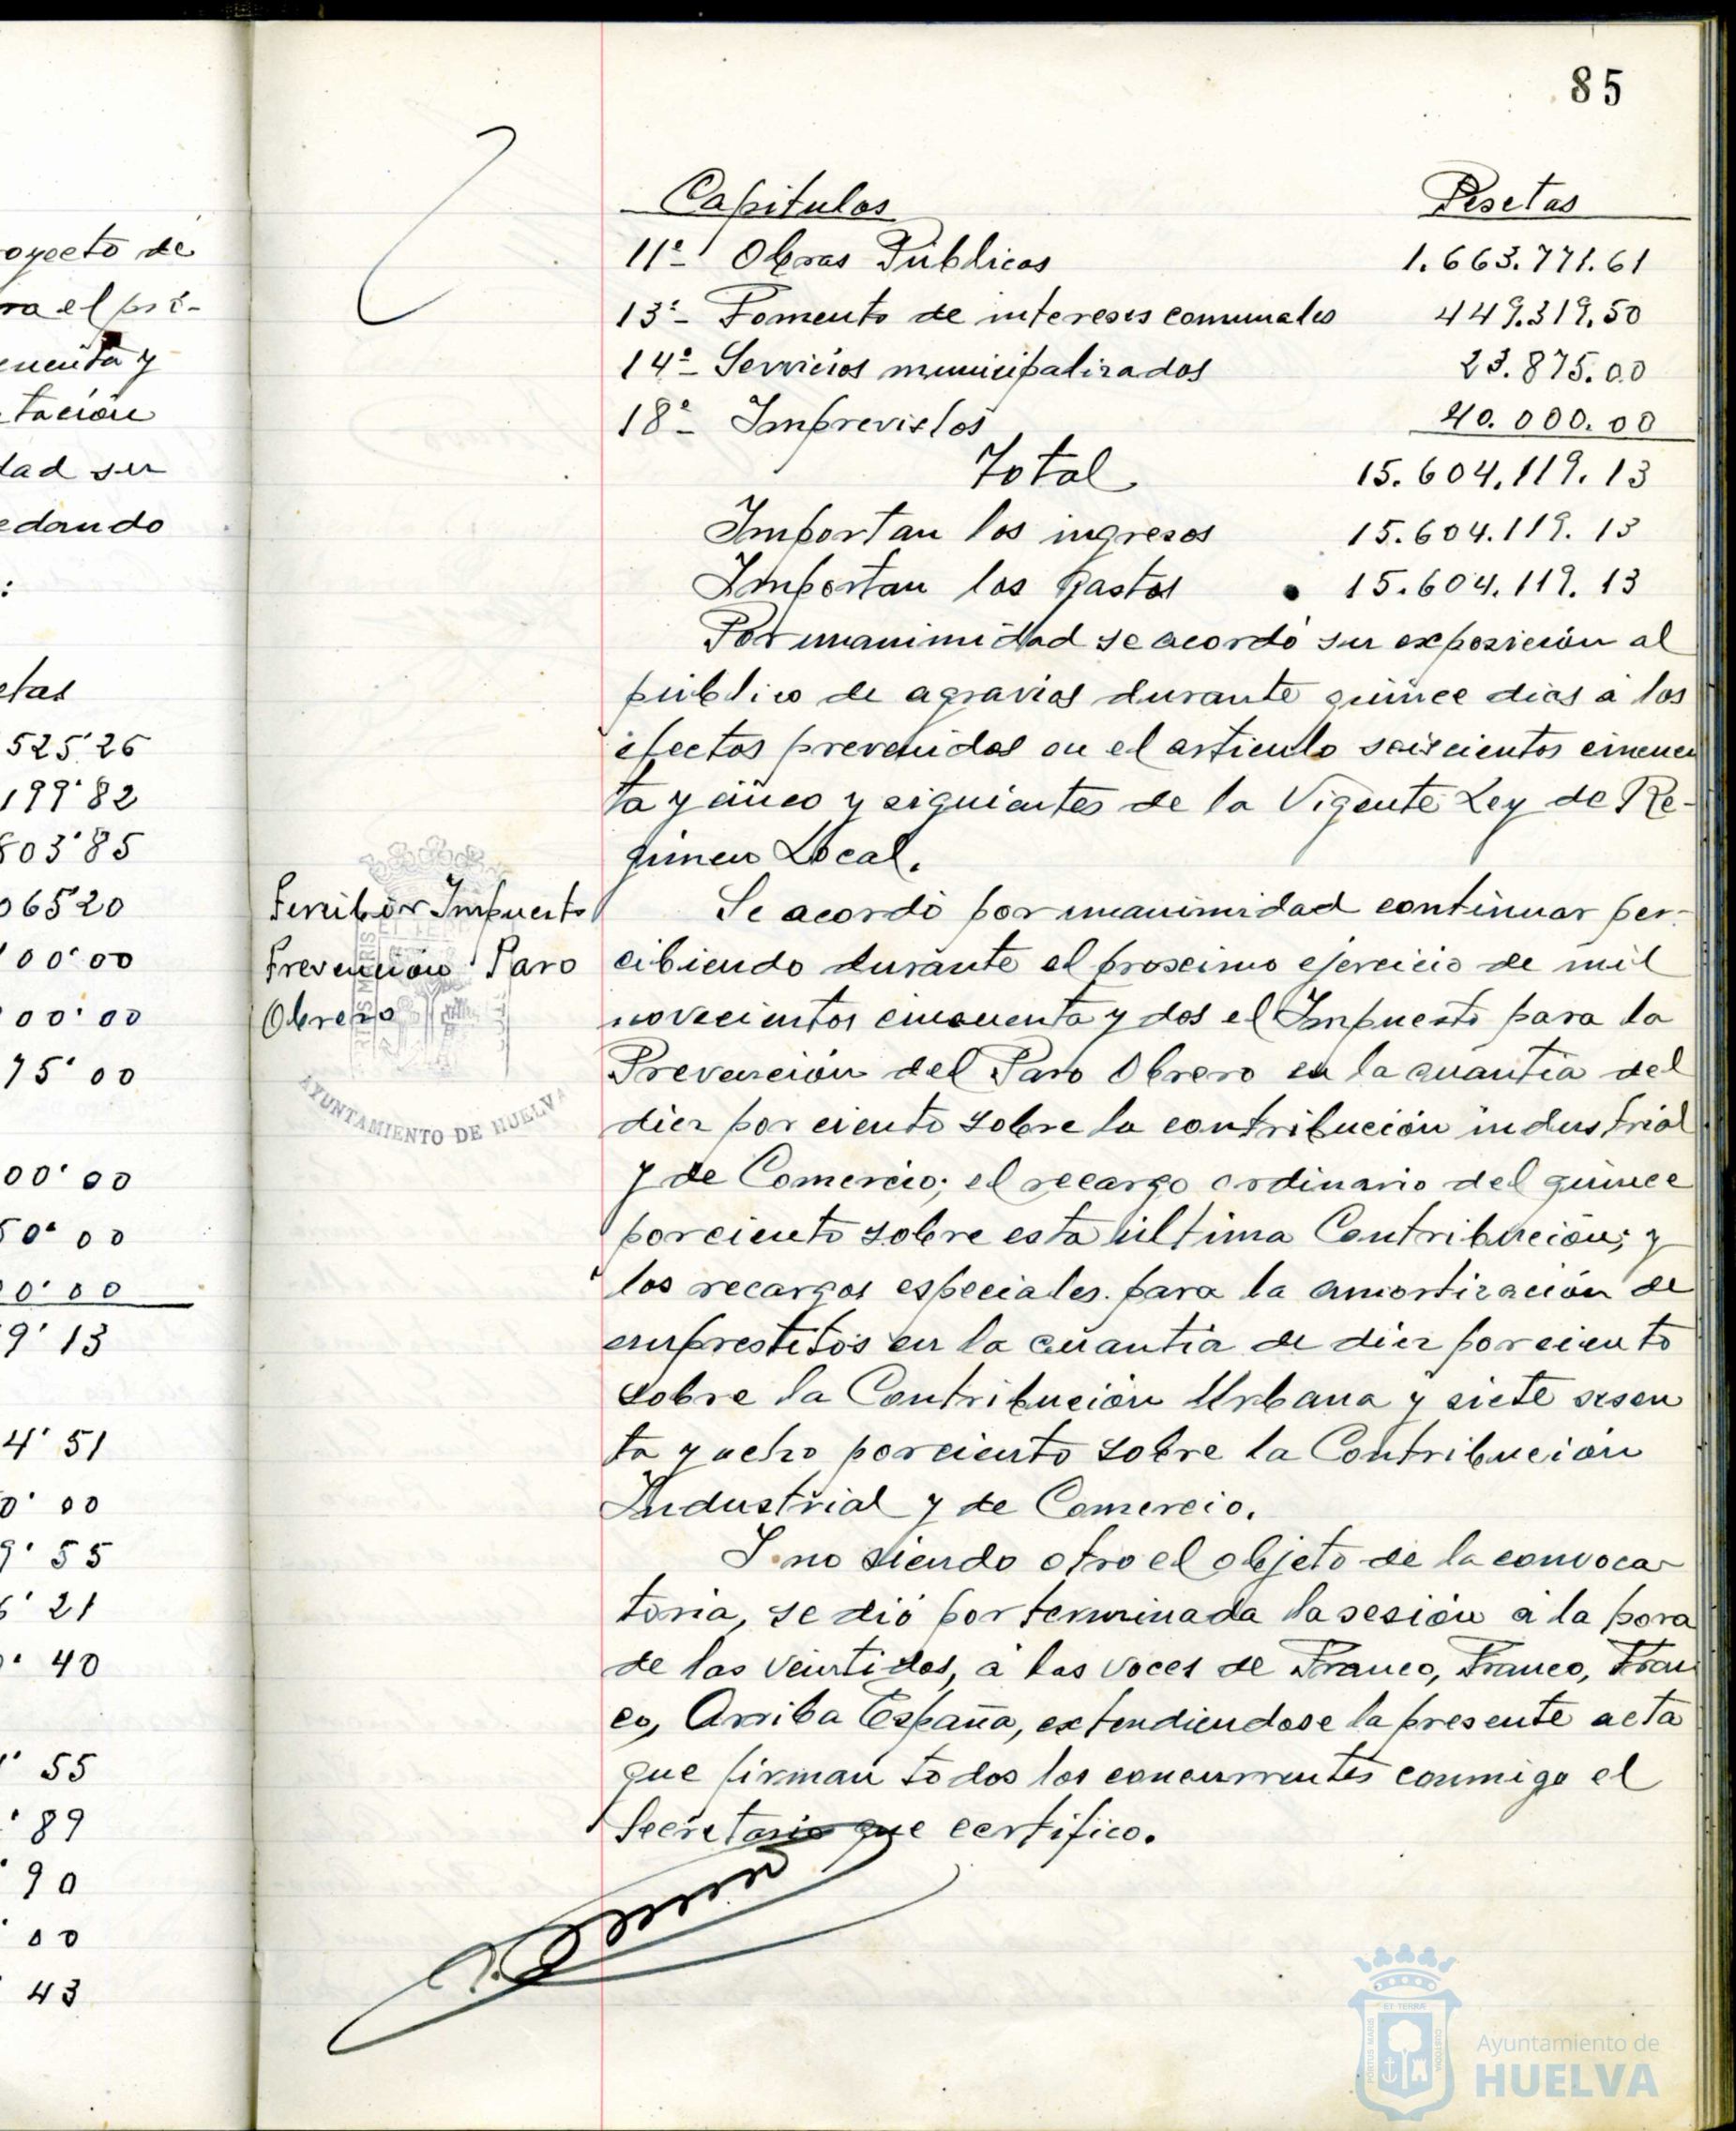 85
oyecto de
ra el pró-
cuenta y
tación
dad su
edando
:
etas
525'26
199'82
803'85
065'20
100'00
00'00
75'00
00'00
50'00
00'00
9'13
4'51
0'00
9'55
6'21
0'40
1'55
'89
'90
'00
43
Capitulos Pesetas
11º- Obras Públicas 1.663.771.61
13º- Fomento de intereses comunales 449.319,50
14º- Servicios municipalizados 23.875.00
18º- Imprevistos 40.000.00
Total 15.604.119.13
Importan los ingresos 15.604.119.13
Importan los gastos 15.604.119.13
Por unanimidad se acordó su exposición al
público de agravios durante quince dias a los
efectos prevenidos en el articulo seiscientos cincuen
ta y cinco y siguientes de la Vigente Ley de Ré-
gimen Local.
Percibir Impuesto
Prevención Paro
Obrero
AYUNTAMIENTO DE HUELVA
Se acordó por unanimidad continuar per-
cibiendo durante el proximo ejercicio de mil
novecientos cincuenta y dos el Impuesto para la
Prevención del Paro Obrero en la cuantia del
diez por ciento sobre la contribución industrial
y de Comercio; el recargo ordinario del quince
porciento sobre esta última Contribución; y
los recargos especiales para la amortización de
emprestitos en la cuantia de diez porciento
sobre la Contribución Urbana y siete sesen
ta y ocho porciento sobre la Contribución
Industrial y de Comercio.
Y no siendo otro el objeto de la convoca-
toria, se dió por terminada la sesión a la hora
de las veintidos, a las voces de Franco, Franco, Fran
co, Arriba España, extendiendose la presente acta
que firman todos los concurrentes conmigo el
Secretario que certifico.
Ayuntamiento de
HUELVA